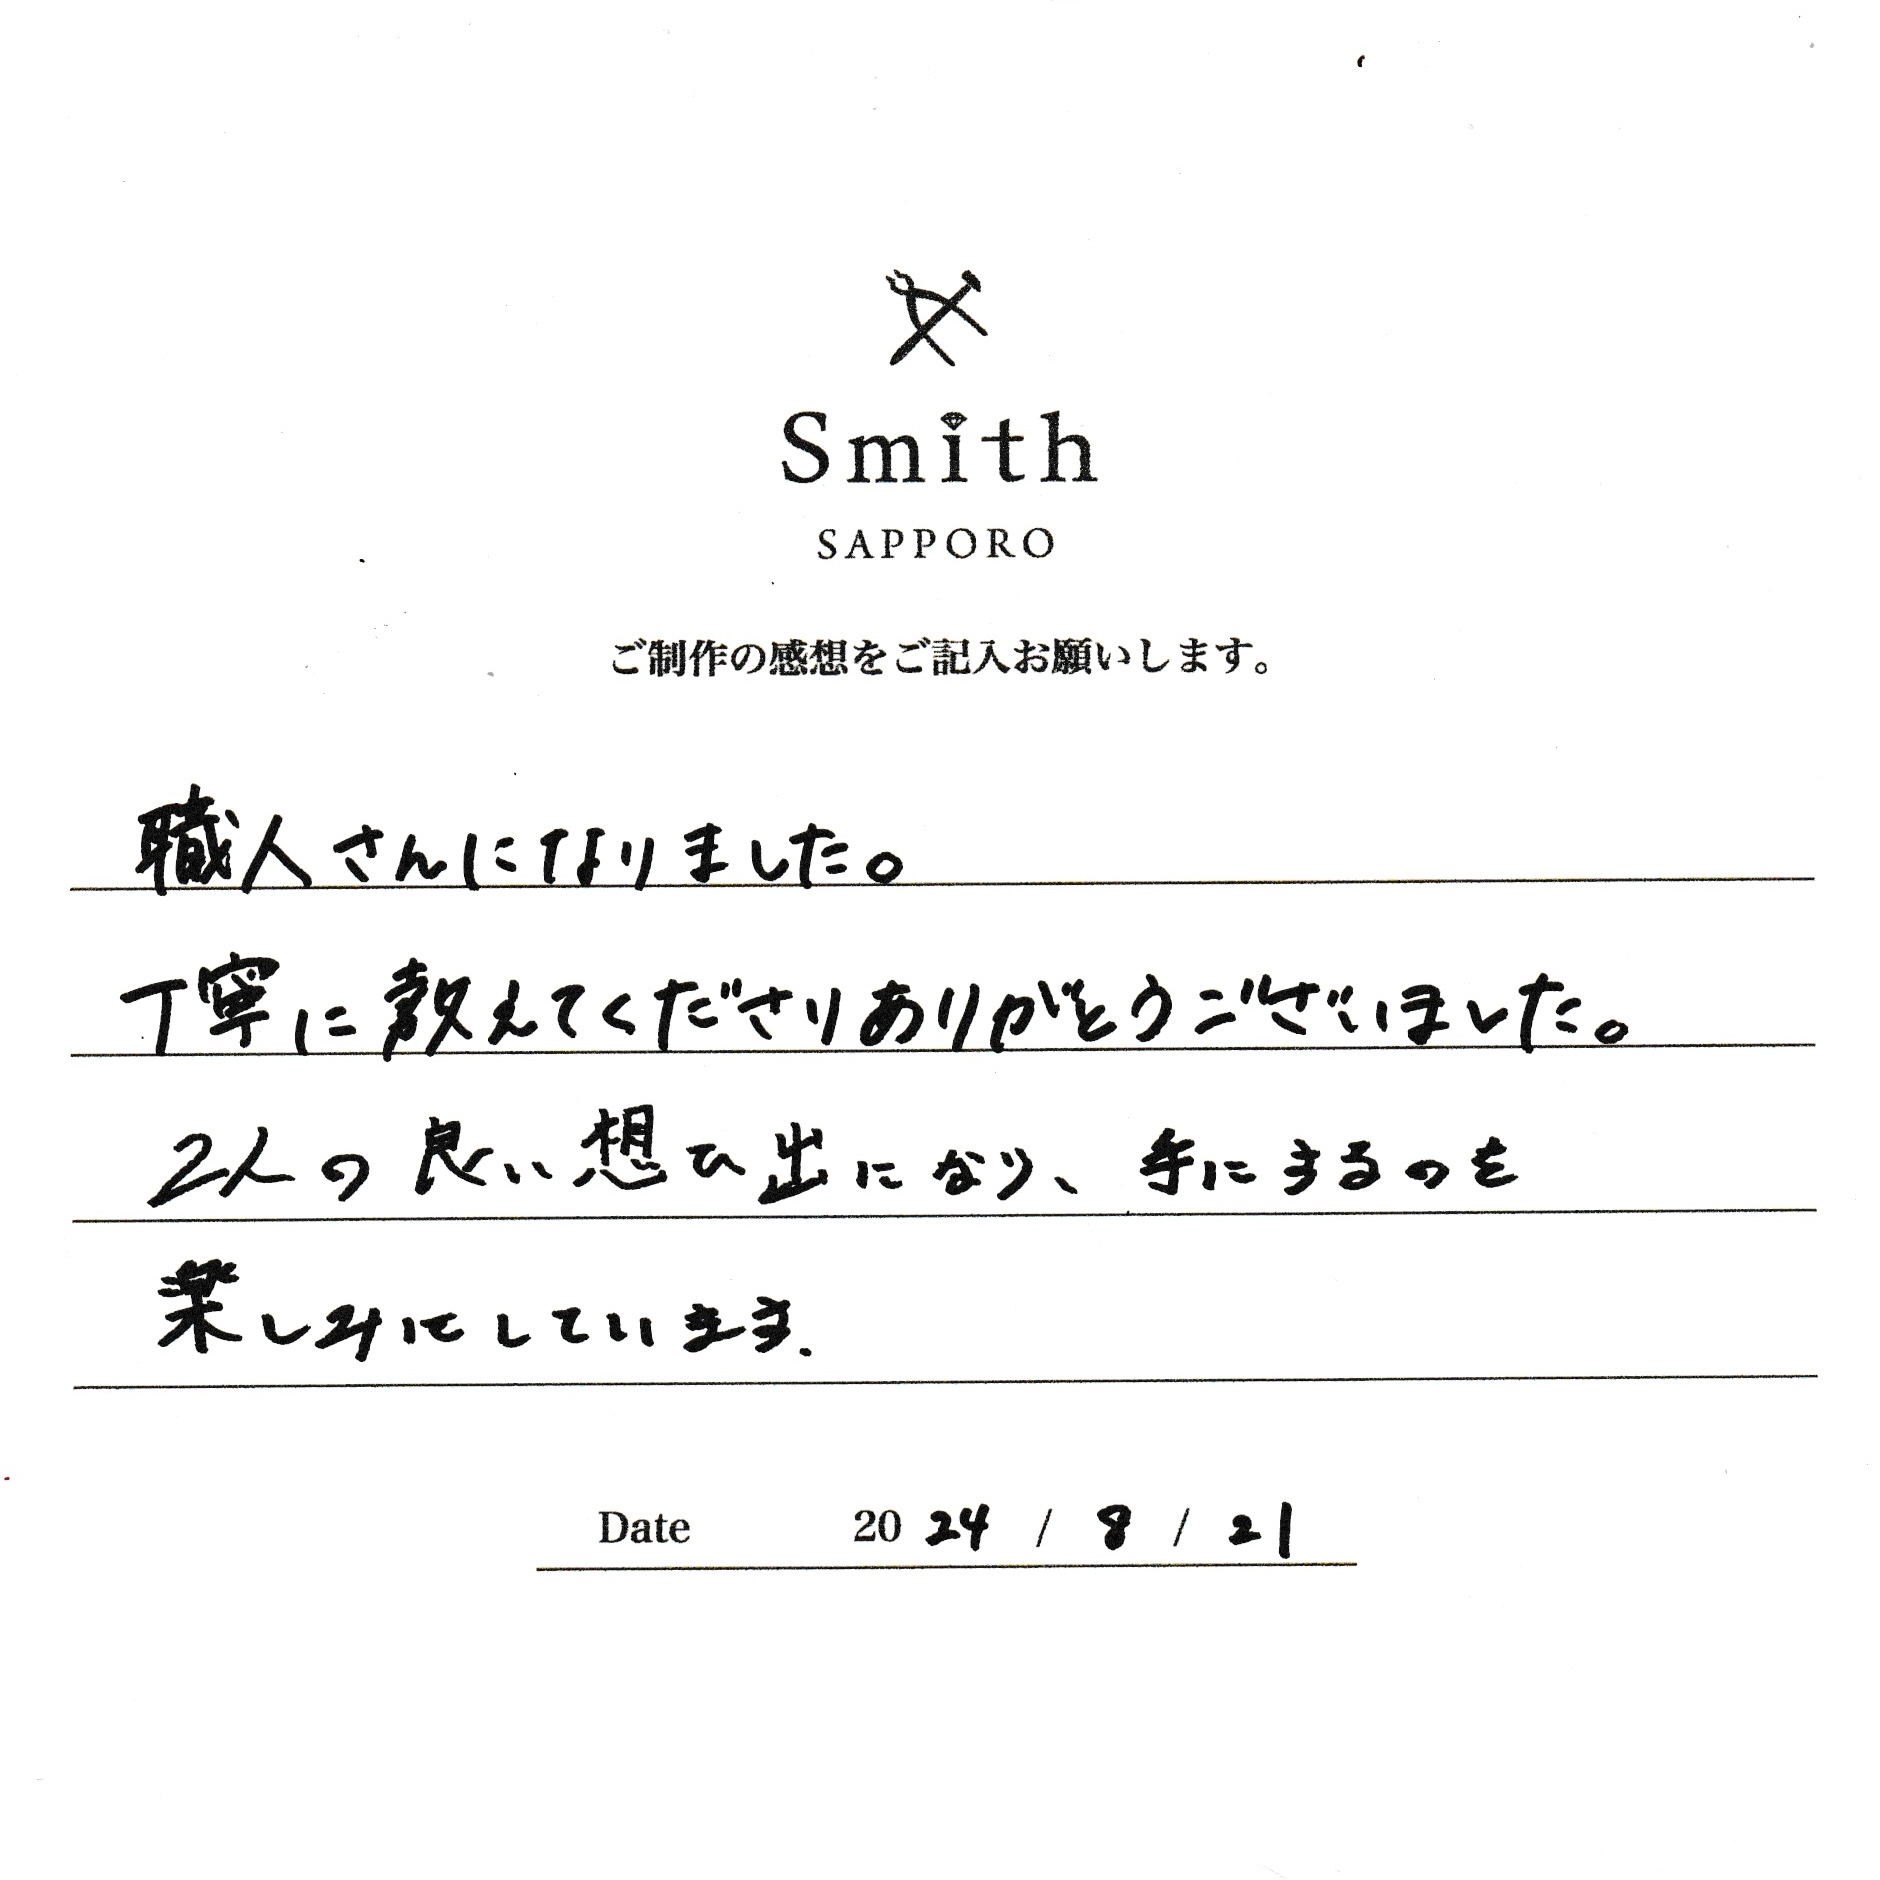 Smith
SAPPORO
ご制作の感想をご記入お願いします。
職人さんになりました。
丁寧に教えてくださりありがとうございました。
2人の良い想ひ出になり、手にするのを
楽しみにしています.
Date 2024 / 8 / 21